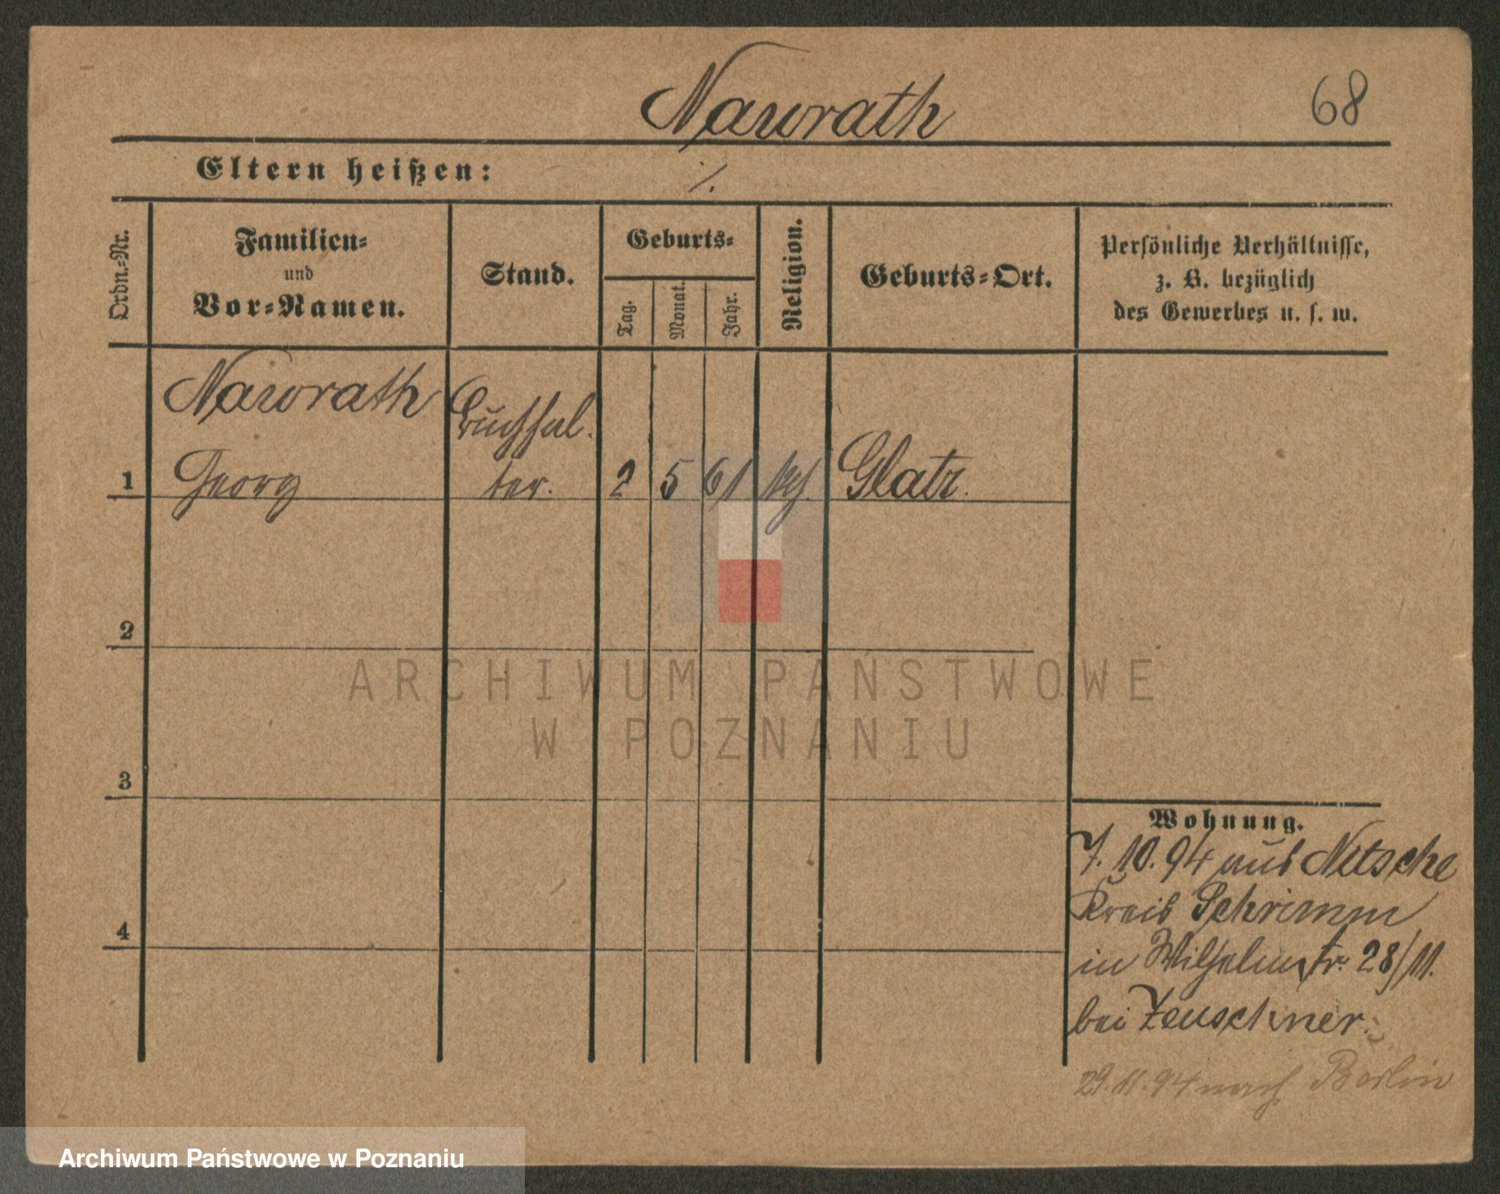 Nawrath
68
Eltern heißen:
Ordn.-Nr.
Familien-
und
Vor-Namen.
Stand.
Geburts-
Tag.
Monat.
Jahr.
Religion.
Geburts-Ort.
Persönliche Verhältnisse,
z. B. bezüglich
des Gewerbes u. s. w.
Nawrath Buchhal-
1 Georg ter. 2 5 61 Glatz.
2
ARCHIWUM PAŃSTWOWE
W POZNANIU
3
Wohnung.
7.10.94 aus Nitsche
Kreis Schrimm
4
in Wilhelmstr. 28/II.
bei Zeuschner.
29.11.94 nach Berlin
Archiwum Państwowe w Poznaniu